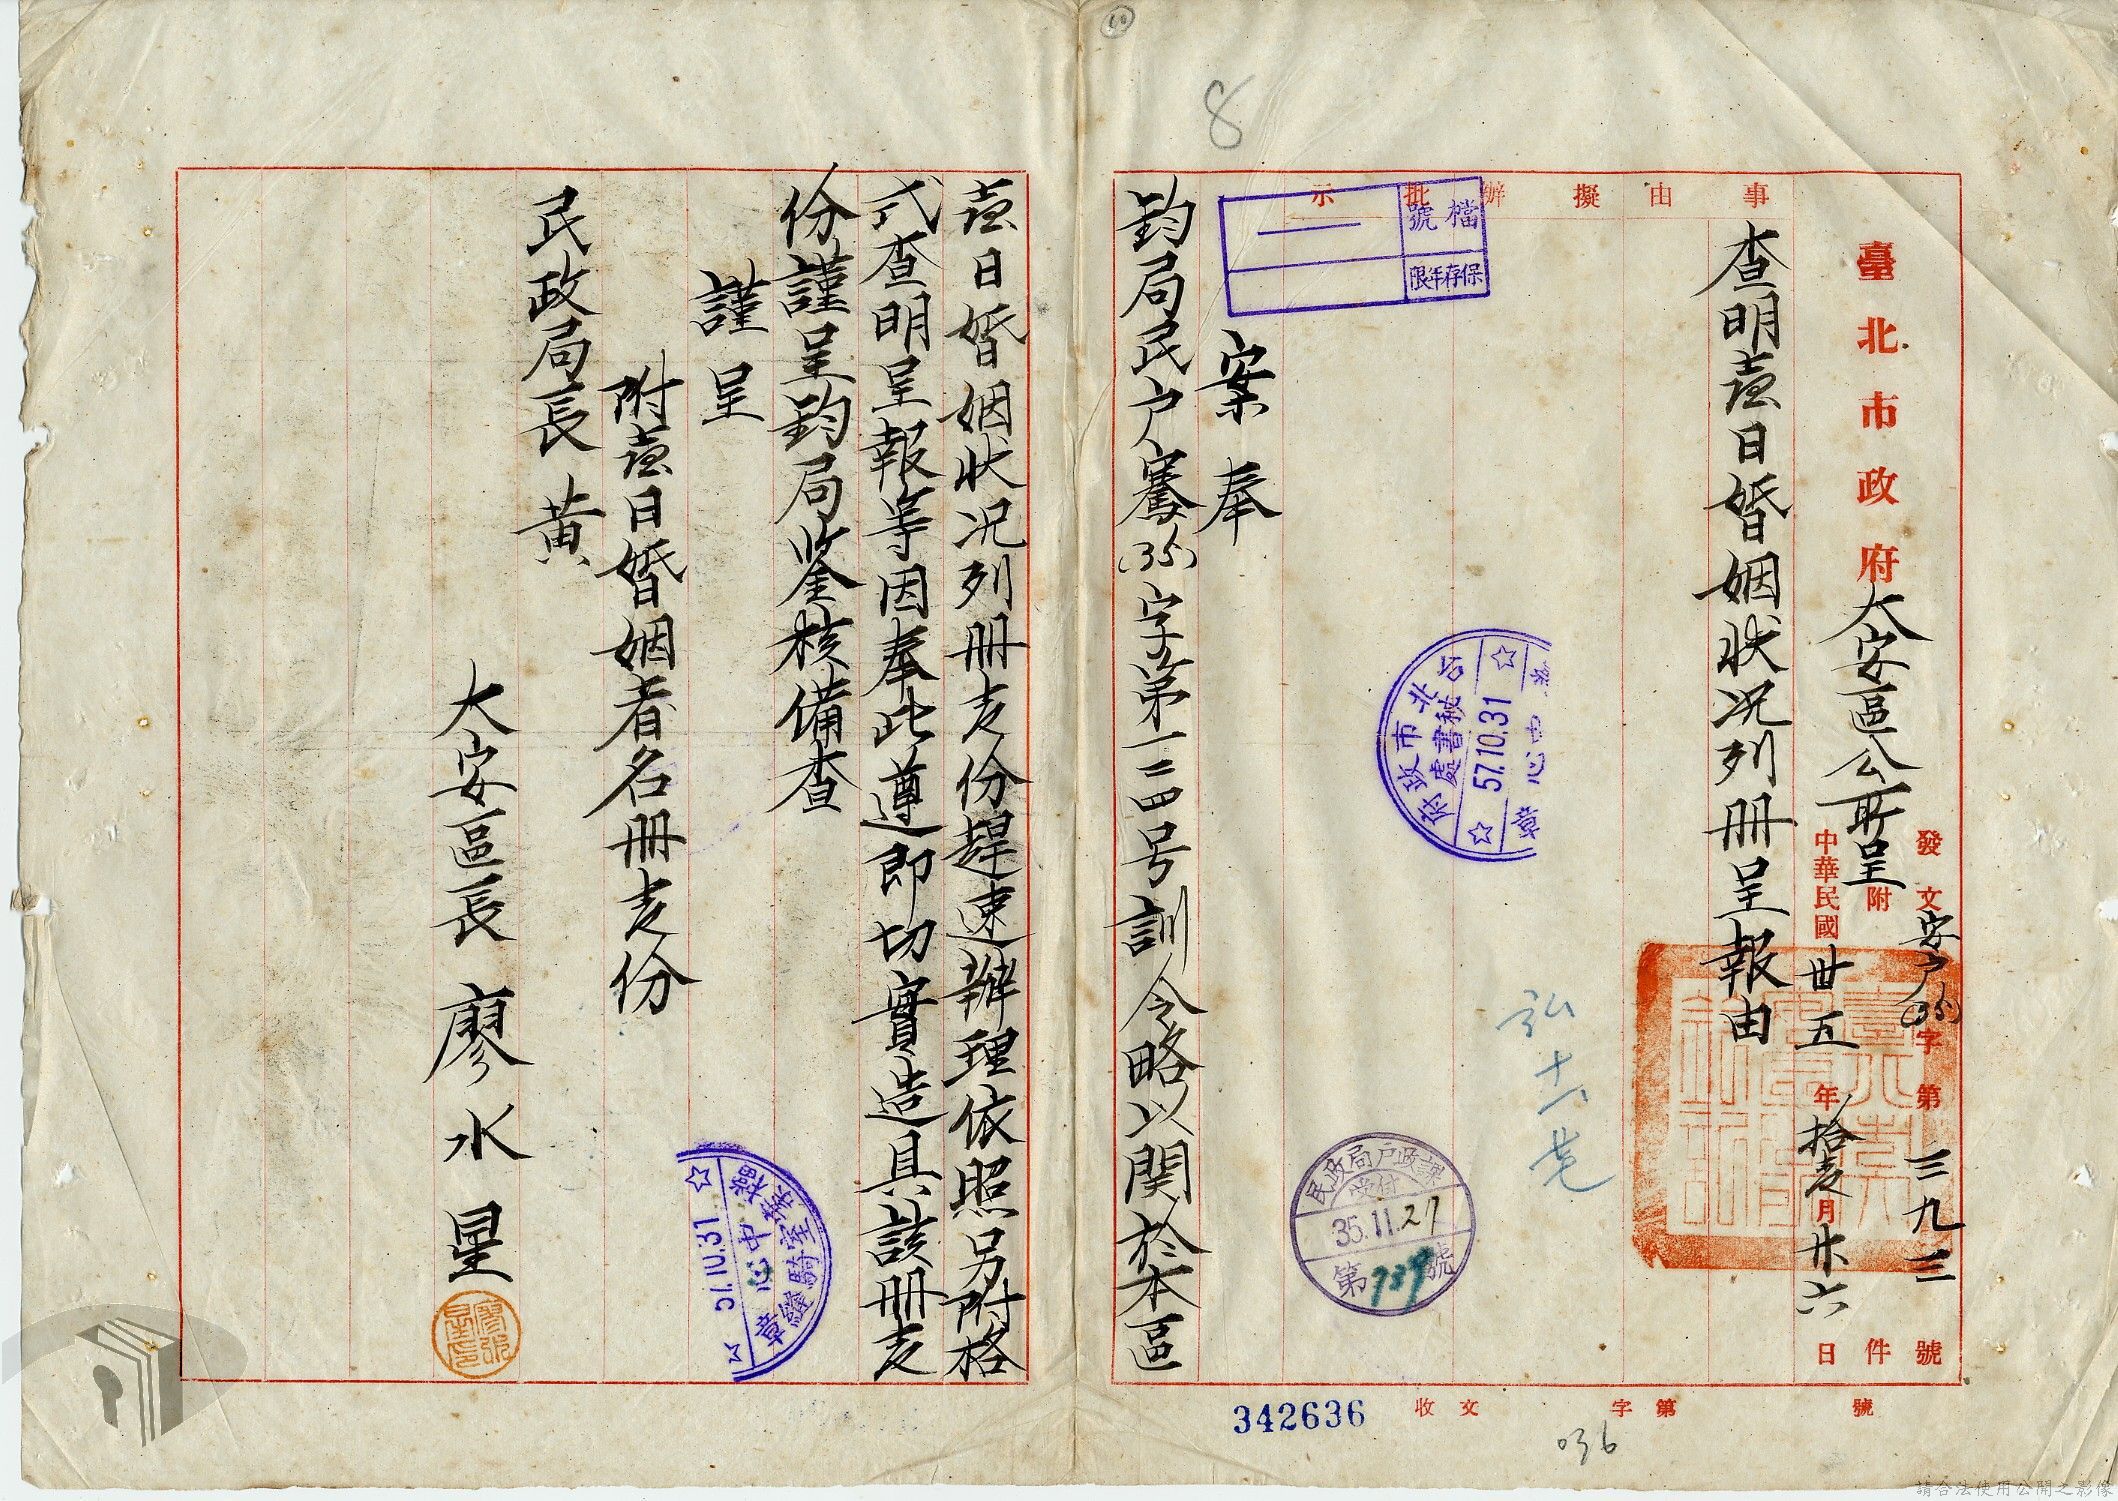 發文安户(35)字第三九三號
臺北市政府大安區公所呈 附 件
中華民國卅五年拾壹月廿六日
事由 擬辦 批示
查明臺日婚姻狀况列册呈報由
案奉
鈞局民户騫(35)字第一三四号訓令略以関於本區
臺日婚姻狀况列册壹份趕速辦理依照另附格
式查明呈報等因奉此遵即切實造具該册壹
份謹呈鈞局鉴核備查
謹呈
附臺日婚姻者名册壹份
民政局長 黄
大安區長 廖水星
檔號
保存年限
台北市政府秘書處
57.10.31
中心
章
弘 十一 廿
民政局户政課
受付
35.11.27
第739號
檔案室騎縫章
中心
57.10.31
廖水星印
收文 字第 號
342636
036
8
60
請合法使用公開之影像